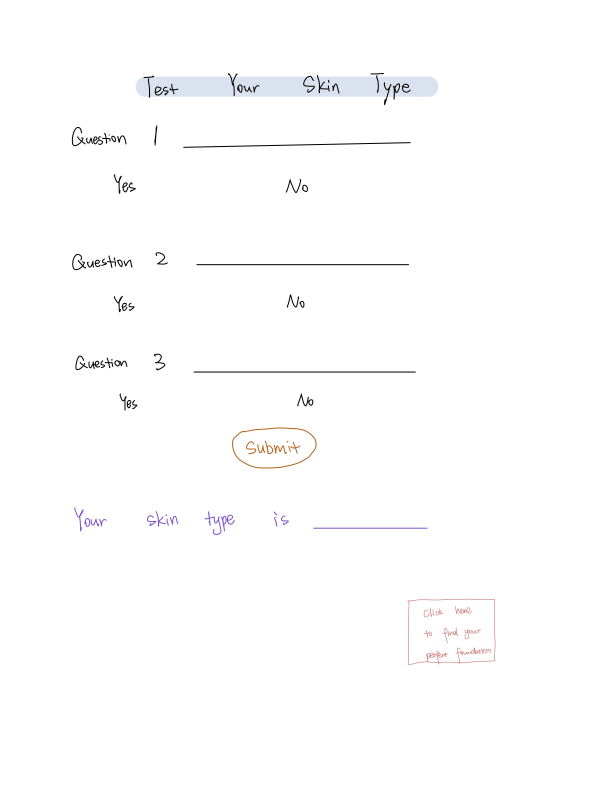 Test Your Skin Type
Question 1
Yes No
Question 2
Yes No
Question 3
Yes No
Submit
Your skin type is
Click here
to find your
perfect foundation